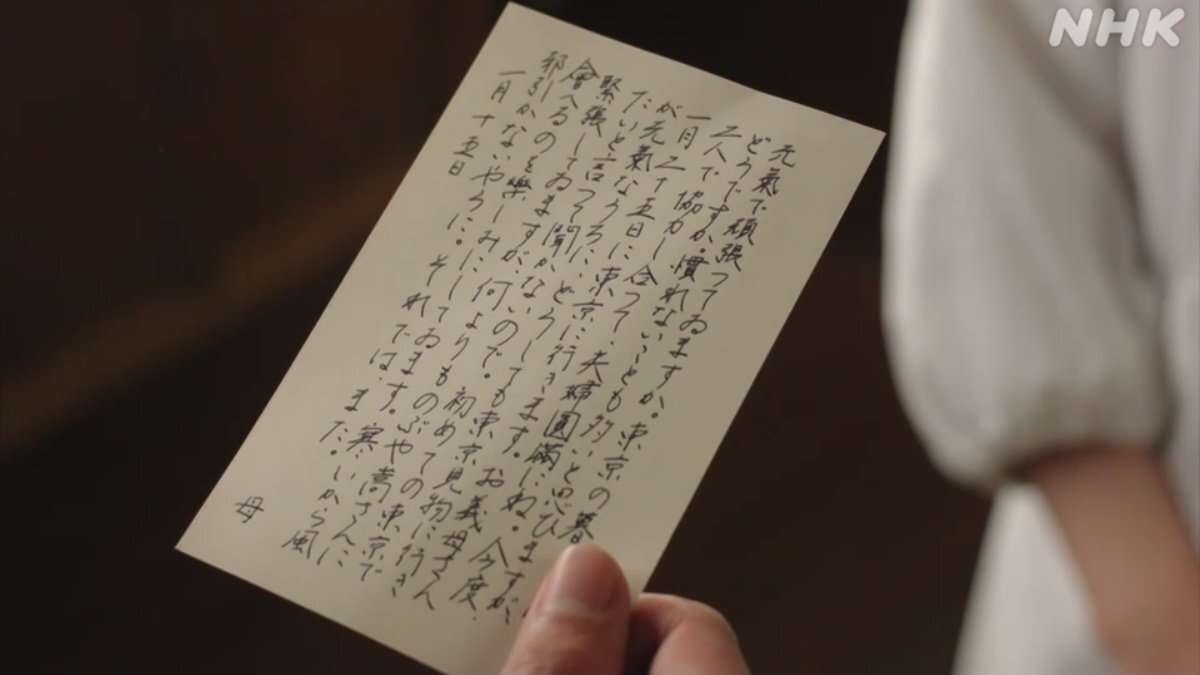 NHK
元氣で頑張つてゐますか。東京の暮
どうですか。慣れないことも多いと思ひますが、
二人で協力し合つて、夫婦圓滿にね。今度、
一月二十五日に東京に行きます。お義母さん
が元氣なうちに、どうしても東京見物に行き
たいと言つて聞かないので。初めての東京で
緊張してゐますが、何よりものぶや嵩さんに
會へるのを樂しみにしてゐます。寒いから風
邪引かないやうに。それでは、また。
一月十五日
母